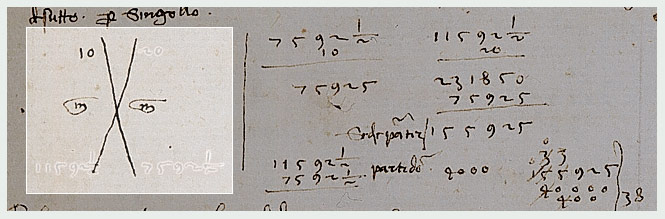 Singollo.
10 20
m m
11592 1/2 7592 1/2
7592 1/2
10
75925
11592 1/2
20
231850
75925
155925
11592 1/2
7592 1/2
partido. 4000
0
33
155925
40000
400
38